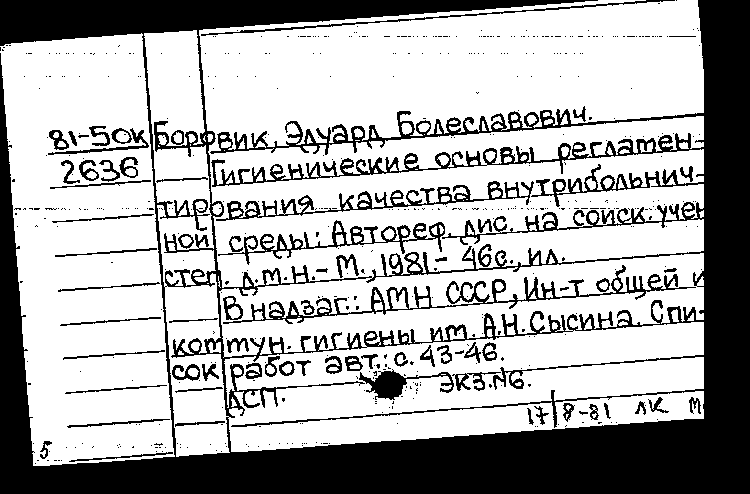 81-5ОК Боровик, Эдуард Болеславович.
2636 Гигиенические основы регламен-
тирования качества внутрибольнич-
ной среды: Автореф. дис. на соиск. учен
степ. д.м.н.- М., 1981.- 46с., ил.
В надзаг.: АМН СССР, Ин-т общей и
коммун. гигиены им. А.Н. Сысина. Спи-
сок работ авт.: с. 43-46.
ДСП. ЭКЗ. №6.
17/8-81 ЛК М
5